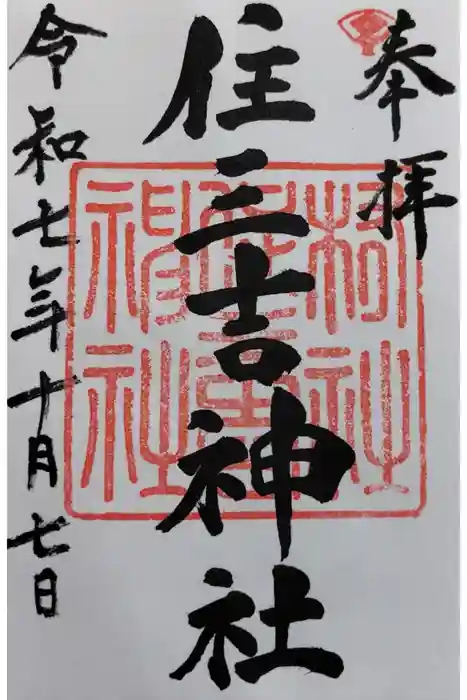 奉拝
住三吉神社
令和七年十月七日